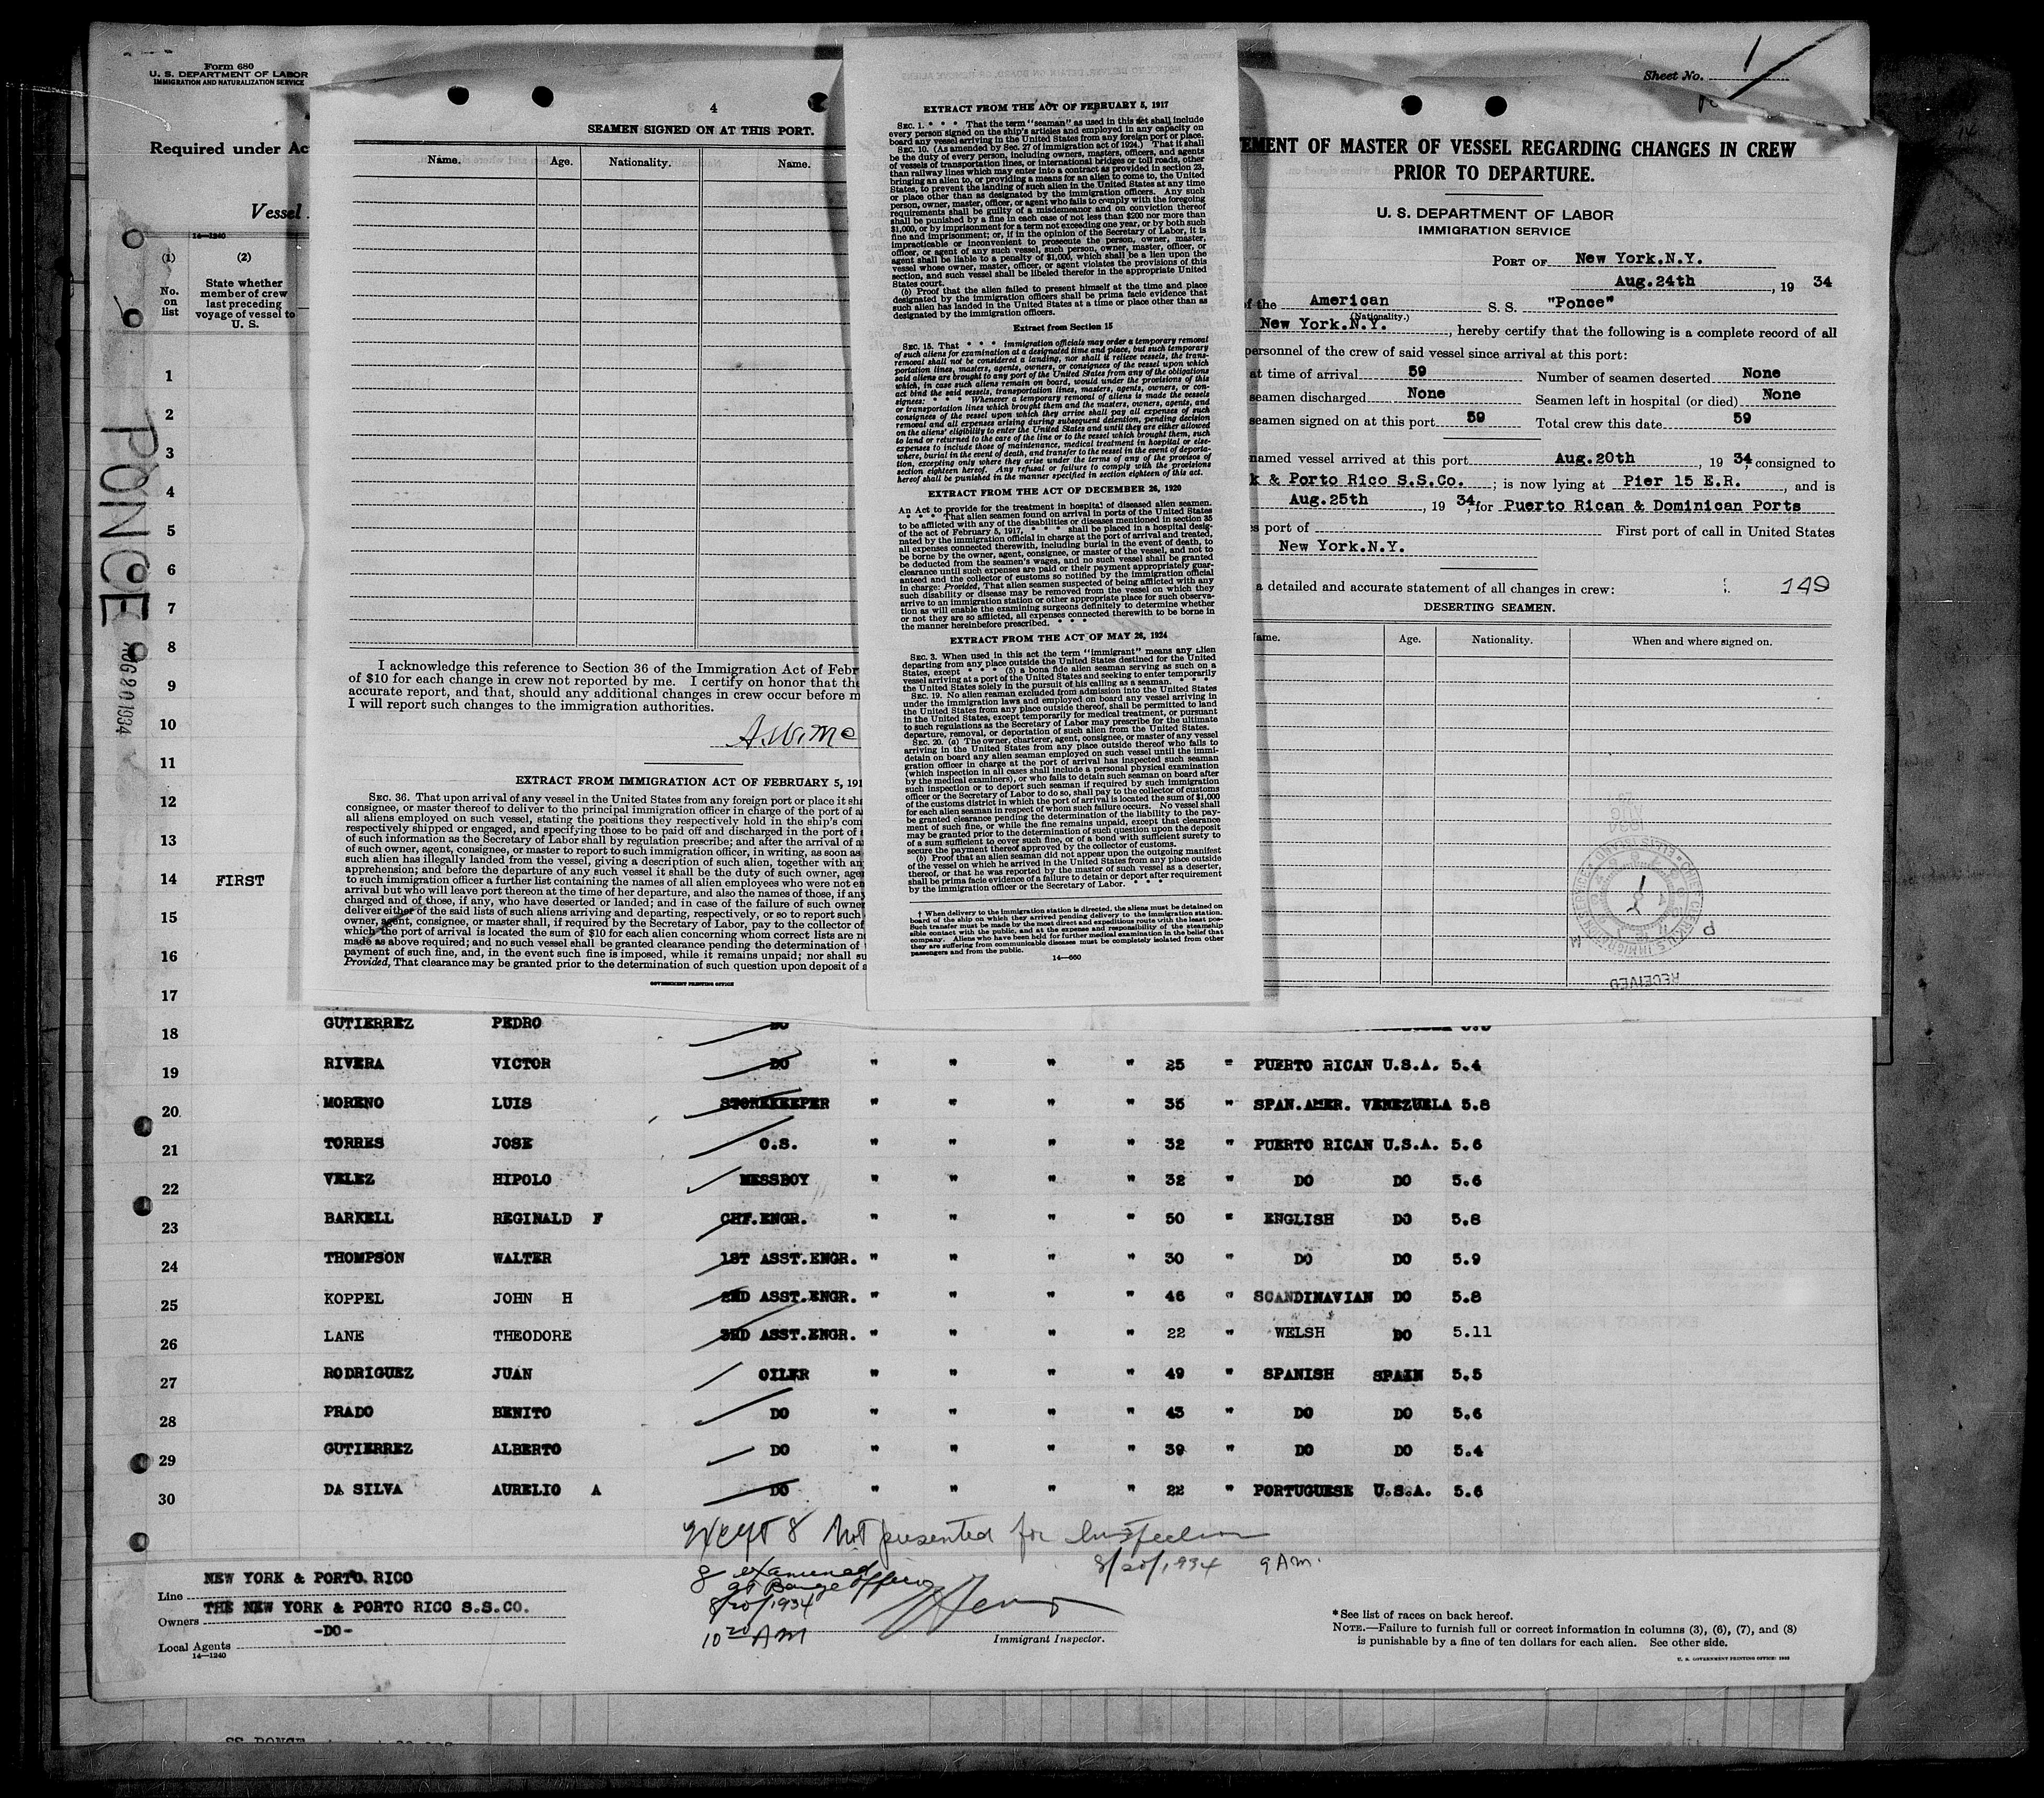 Form 680
U. S. DEPARTMENT OF LABOR
IMMIGRATION AND NATURALIZATION SERVICE
Required under Ac
Vessel
14—1240
(1)
No.
on
list
(2)
State whether
member of crew
last preceding
voyage of vessel to
U. S.
PONCE
AUG 20 1934
4
SEAMEN SIGNED ON AT THIS PORT.
Name. Age. Nationality. Name.
I acknowledge this reference to Section 36 of the Immigration Act of Febr
of $10 for each change in crew not reported by me. I certify on honor that the
accurate report, and that, should any additional changes in crew occur before m
I will report such changes to the immigration authorities.
EXTRACT FROM IMMIGRATION ACT OF FEBRUARY 5, 191
SEC. 36. That upon arrival of any vessel in the United States from any foreign port or place it sha
consignee, or master thereof to deliver to the principal immigration officer in charge of the port of a
all aliens employed on such vessel, stating the positions they respectively hold in the ship's com
respectively shipped or engaged, and specifying those to be paid off and discharged in the port of
of such information as the Secretary of Labor shall by regulation prescribe; and after the arrival of a
of such owner, agent, consignee, or master to report to such immigration officer, in writing, as soon as
such alien has illegally landed from the vessel, giving a description of such alien, together with an
apprehension; and before the departure of any such vessel it shall be the duty of such owner, age
to such immigration officer a further list containing the names of all alien employees who were not en
arrival but who will leave port thereon at the time of her departure, and also the names of those, if any
charged and of those, if any, who have deserted or landed; and in case of the failure of such owne
deliver either of the said lists of such aliens arriving and departing, respectively, or so to report such
owner, agent, consignee, or master shall, if required by the Secretary of Labor, pay to the collector of
which the port of arrival is located the sum of $10 for each alien concerning whom correct lists are n
made as above required; and no such vessel shall be granted clearance pending the determination of
payment of such fine, and, in the event such fine is imposed, while it remains unpaid; nor shall su
Provided, That clearance may be granted prior to the determination of such question upon deposit of a
GOVERNMENT PRINTING OFFICE
EXTRACT FROM THE ACT OF FEBRUARY 5, 1917
SEC. 1. * * * That the term "seaman" as used in this act shall include
every person signed on the ship's articles and employed in any capacity on
board any vessel arriving in the United States from any foreign port or place.
SEC. 10. (As amended by Sec. 27 of immigration act of 1924.) That it shall
be the duty of every person, including owners, masters, officers, and agents
of vessels of transportation lines, or international bridges or toll roads, other
than railway lines which may enter into a contract as provided in section 23,
bringing an alien to, or providing a means for an alien to come to, the United
States, to prevent the landing of such alien in the United States at any time
or place other than as designated by the immigration officers. Any such
person, owner, master, officer, or agent who fails to comply with the foregoing
requirements shall be guilty of a misdemeanor and on conviction thereof
shall be punished by a fine in each case of not less than $200 nor more than
$1,000, or by imprisonment for a term not exceeding one year, or by both such
fine and imprisonment; or, if in the opinion of the Secretary of Labor, it is
impracticable or inconvenient to prosecute the person, owner, master,
officer, or agent of any such vessel, such person, owner, master, officer, or
agent shall be liable to a penalty of $1,000, which shall be a lien upon the
vessel whose owner, master, officer, or agent violates the provisions of this
section, and such vessel shall be libeled therefor in the appropriate United
States court.
(b) Proof that the alien failed to present himself at the time and place
designated by the immigration officers shall be prima facie evidence that
such alien has landed in the United States at a time or place other than as
designated by the immigration officers.
Extract from Section 15
SEC. 15. That * * * immigration officials may order a temporary removal
of such aliens for examination at a designated time and place, but such temporary
removal shall not be considered a landing, nor shall it relieve vessels, the trans-
portation lines, masters, agents, owners, or consignees of the vessel upon which
said aliens are brought to any port of the United States from any of the obligations
which, in case such aliens remain on board, would under the provisions of this
act bind the said vessels, transportation lines, masters, agents, owners, or con-
signees: * * * Whenever a temporary removal of aliens is made the vessels
or transportation lines which brought them and the masters, owners, agents, and
consignees of the vessel upon which they arrive shall pay all expenses of such
removal and all expenses arising during subsequent detention, pending decision
on the aliens' eligibility to enter the United States and until they are either allowed
to land or returned to the care of the line or to the vessel which brought them, such
expenses to include those of maintenance, medical treatment in hospital or else-
where, burial in the event of death, and transfer to the vessel in the event of deporta-
tion, excepting only where they arise under the terms of any of the provisos of
section eighteen hereof. Any refusal or failure to comply with the provisions
hereof shall be punished in the manner specified in section eighteen of this act.
EXTRACT FROM THE ACT OF DECEMBER 26, 1920
An Act to provide for the treatment in hospital of diseased alien seamen.
* * * That alien seamen found on arrival in ports of the United States
to be afflicted with any of the disabilities or diseases mentioned in section 35
of the act of February 5, 1917, * * * shall be placed in a hospital desig-
nated by the immigration official in charge at the port of arrival and treated,
all expenses connected therewith, including burial in the event of death, to
be borne by the owner, agent, consignee, or master of the vessel, and not to
be deducted from the seamen's wages, and no such vessel shall be granted
clearance until such expenses are paid or their payment appropriately guar-
anteed and the collector of customs so notified by the immigration official
in charge: Provided, That alien seamen suspected of being afflicted with any
such disability or disease may be removed from the vessel on which they
arrive to an immigration station or other appropriate place for such observa-
tion as will enable the examining surgeons definitely to determine whether
or not they are so afflicted, all expenses connected therewith to be borne in
the manner hereinbefore prescribed. * * *
EXTRACT FROM THE ACT OF MAY 26, 1924
SEC. 3. When used in this act the term "immigrant" means any alien
departing from any place outside the United States destined for the United
States, except * * * (5) a bona fide alien seaman serving as such on a
vessel arriving at a port of the United States and seeking to enter temporarily
the United States solely in the pursuit of his calling as a seaman. * * *
SEC. 19. No alien seaman excluded from admission into the United States
under the immigration laws and employed on board any vessel arriving in
the United States from any place outside thereof, shall be permitted to land
in the United States, except temporarily for medical treatment, or pursuant
to such regulations as the Secretary of Labor may prescribe for the ultimate
departure, removal, or deportation of such alien from the United States.
SEC. 20. (a) The owner, charterer, agent, consignee, or master of any vessel
arriving in the United States from any place outside thereof who fails to
detain on board any alien seaman employed on such vessel until the immi-
gration officer in charge at the port of arrival has inspected such seaman
(which inspection in all cases shall include a personal physical examination
by the medical examiners), or who fails to detain such seaman on board after
such inspection or to deport such seaman if required by such immigration
officer or the Secretary of Labor to do so, shall pay to the collector of customs
of the customs district in which the port of arrival is located the sum of $1,000
for each alien seaman in respect of whom such failure occurs. No vessel shall
be granted clearance pending the determination of the liability to the pay-
ment of such fine, or while the fine remains unpaid, except that clearance
may be granted prior to the determination of such question upon the deposit
of a sum sufficient to cover such fine, or of a bond with sufficient surety to
secure the payment thereof approved by the collector of customs.
(b) Proof that an alien seaman did not appear upon the outgoing manifest
of the vessel on which he arrived in the United States from any place outside
thereof, or that he was reported by the master of such vessel as a deserter,
shall be prima facie evidence of a failure to detain or deport after requirement
by the immigration officer or the Secretary of Labor. * * *
† When delivery to the immigration station is directed, the aliens must be detained on
board of the ship on which they arrived pending delivery to the immigration station.
Such transfer must be made by the most direct and expeditious route with the least pos-
sible contact with the public, and at the expense and responsibility of the steamship
company. Aliens who have been held for further medical examination in the belief that
they are suffering from communicable diseases must be completely isolated from other
passengers and from the public.
14—660
Sheet No. 1
EMENT OF MASTER OF VESSEL REGARDING CHANGES IN CREW
PRIOR TO DEPARTURE.
U. S. DEPARTMENT OF LABOR
IMMIGRATION SERVICE
PORT OF New York.N.Y.
Aug.24th, 19 34
of the American S. S. "Ponce"
(Nationality.)
New York.N.Y., hereby certify that the following is a complete record of all
personnel of the crew of said vessel since arrival at this port:
at time of arrival 59 Number of seamen deserted None
seamen discharged None Seamen left in hospital (or died) None
seamen signed on at this port 59 Total crew this date 59
named vessel arrived at this port Aug.20th, 19 34, consigned to
k & Porto Rico S.S.Co.; is now lying at Pier 15 E.R., and is
Aug.25th, 19 34, for Puerto Rican & Dominican Ports
s port of First port of call in United
States
New York.N.Y.
a detailed and accurate statement of all changes in crew: 149
DESERTING SEAMEN.
ame. Age. Nationality. When and where signed on.
RECEIVED
1
2
3
4
5
6
7
8
9
10
11
12
13
14 FIRST
15
16
17
18 GUTIERREZ PEDRO DO
19 RIVERA VICTOR DO " " " " 25 " PUERTO RICAN U.S.A. 5.4
20 MORENO LUIS STOREKEEPER " " " " 35 " SPAN.AMER. VENEZUELA 5.8
21 TORRES JOSE O.S. " " " " 32 " PUERTO RICAN U.S.A. 5.6
22 VELEZ HIPOLO MESSBOY " " " " 32 " DO DO 5.6
23 BARKELL REGINALD F CHF.ENGR. " " " " 50 " ENGLISH DO 5.8
24 THOMPSON WALTER 1ST ASST.ENGR. " " " " 30 " DO DO 5.9
25 KOPPEL JOHN H 2ND ASST.ENGR. " " " " 46 " SCANDINAVIAN DO 5.8
26 LANE THEODORE 3RD ASST.ENGR. " " " " 22 " WELSH DO 5.11
27 RODRIGUEZ JUAN OILER " " " " 49 " SPANISH SPAIN 5.5
28 PRADO BENITO DO " " " " 43 " DO DO 5.6
29 GUTIERREZ ALBERTO DO " " " " 39 " DO DO 5.4
30 DA SILVA AURELIO A DO " " " " 22 " PORTUGUESE U.S.A. 5.6
except 8 Not presented for Inspection
8/20/1934 9 AM.
8 examined
at Barge office
8/20/1934
10 20 AM
Immigrant Inspector.
Line NEW YORK & PORTO RICO
Owners THE NEW YORK & PORTO RICO S.S.CO.
Local Agents -DO-
14—1240
*See list of races on back hereof.
NOTE.—Failure to furnish full or correct information in columns (3), (6), (7), and (8)
is punishable by a fine of ten dollars for each alien. See other side.